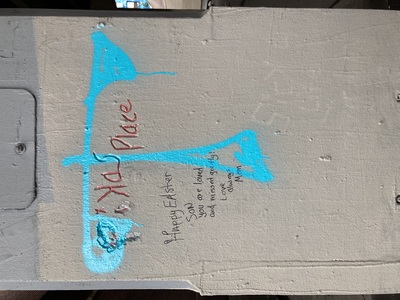 Kas
Place
Happy EAster
SON
you are loved
and missed greatly!
Love
Always
Mom